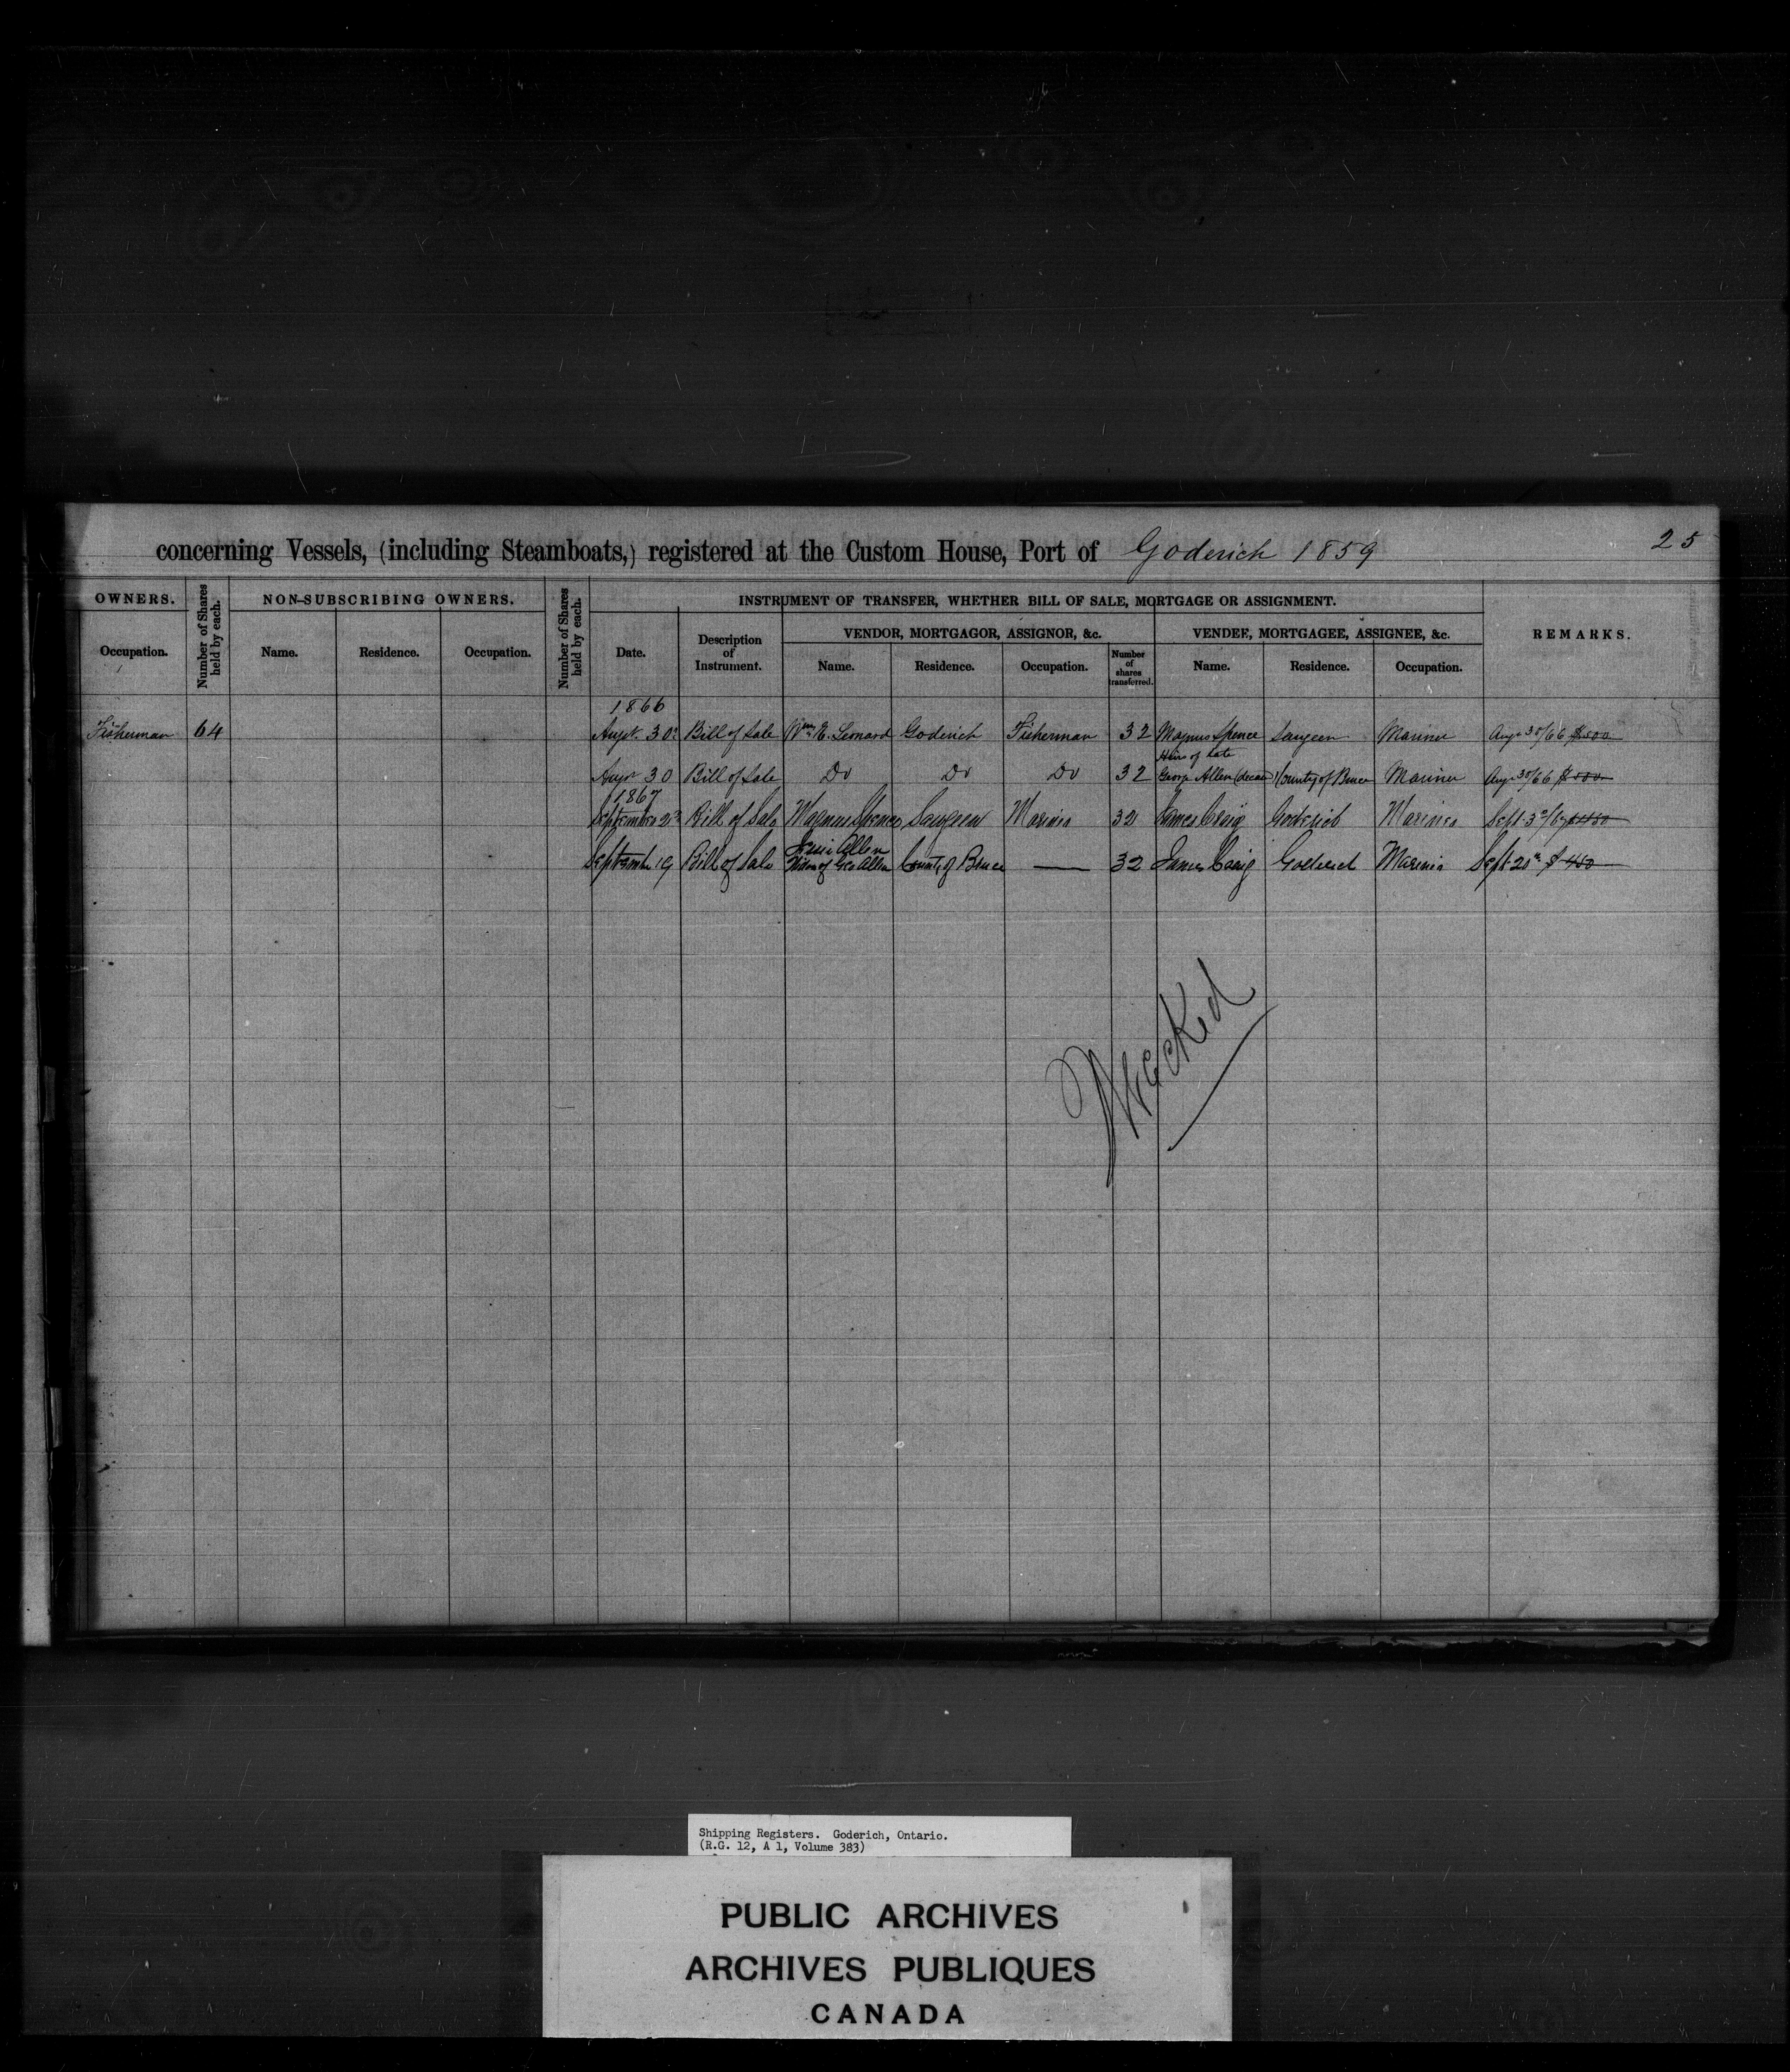 concerning Vessels, (including Steamboats,) registered at the Custom House, Port of Goderich 1859
25
OWNERS.
Number of Shares held by each.
NON-SUBSCRIBING OWNERS.
Number of Shares held by each.
INSTRUMENT OF TRANSFER, WHETHER BILL OF SALE, MORTGAGE OR ASSIGNMENT.
REMARKS.
VENDOR, MORTGAGOR, ASSIGNOR, &c.
VENDEE, MORTGAGEE, ASSIGNEE, &c.
Occupation.
Name.
Residence.
Occupation.
Date.
Description of Instrument.
Name.
Residence.
Occupation.
Number of shares transferred.
Name.
Residence.
Occupation.
1866
Fisherman 64 Augt. 30 Bill of Sale Wm. Leonard Goderich Fisherman 32 Magnus Spence Saugeen Mariner Aug 30/66 $500
Heirs of Late
Augt 30 Bill of Sale Do Do Do 32 George Allen County of Bruce Mariner Aug 30/66
1867
September 2 Bill of Sale Magnus Spence Saugeen Mariner 32 James Craig Goderich Mariner Sept. 3
Jessie Allen
September 19 Bill of Sale Widow of Geo Allen County of Bruce — 32 James Craig Goderich Mariner Sept 20 $450
Wrecked
Shipping Registers. Goderich, Ontario.
(R.G. 12, A 1, Volume 383)
PUBLIC ARCHIVES
ARCHIVES PUBLIQUES
CANADA